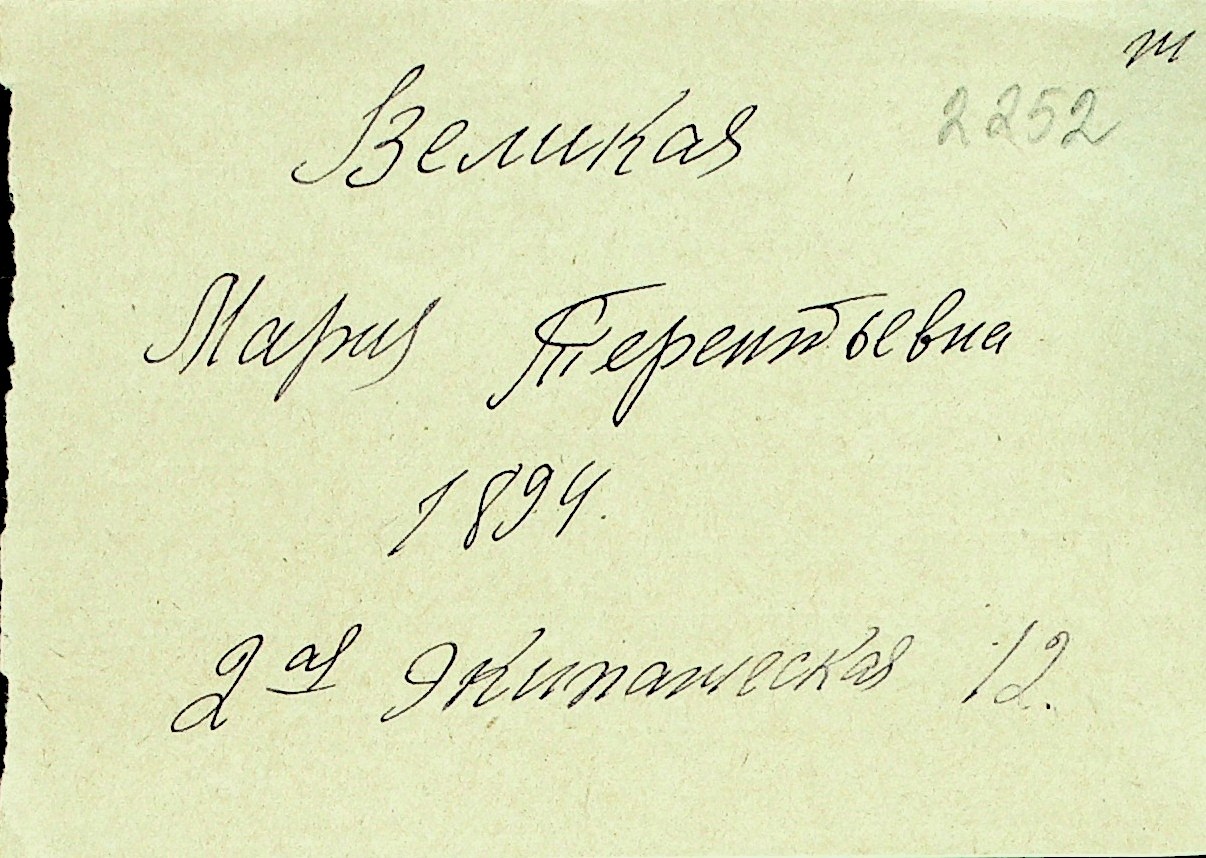 т
2252
Великая
Мария Терентьевна
1894.
2ая Экипажеская 12.